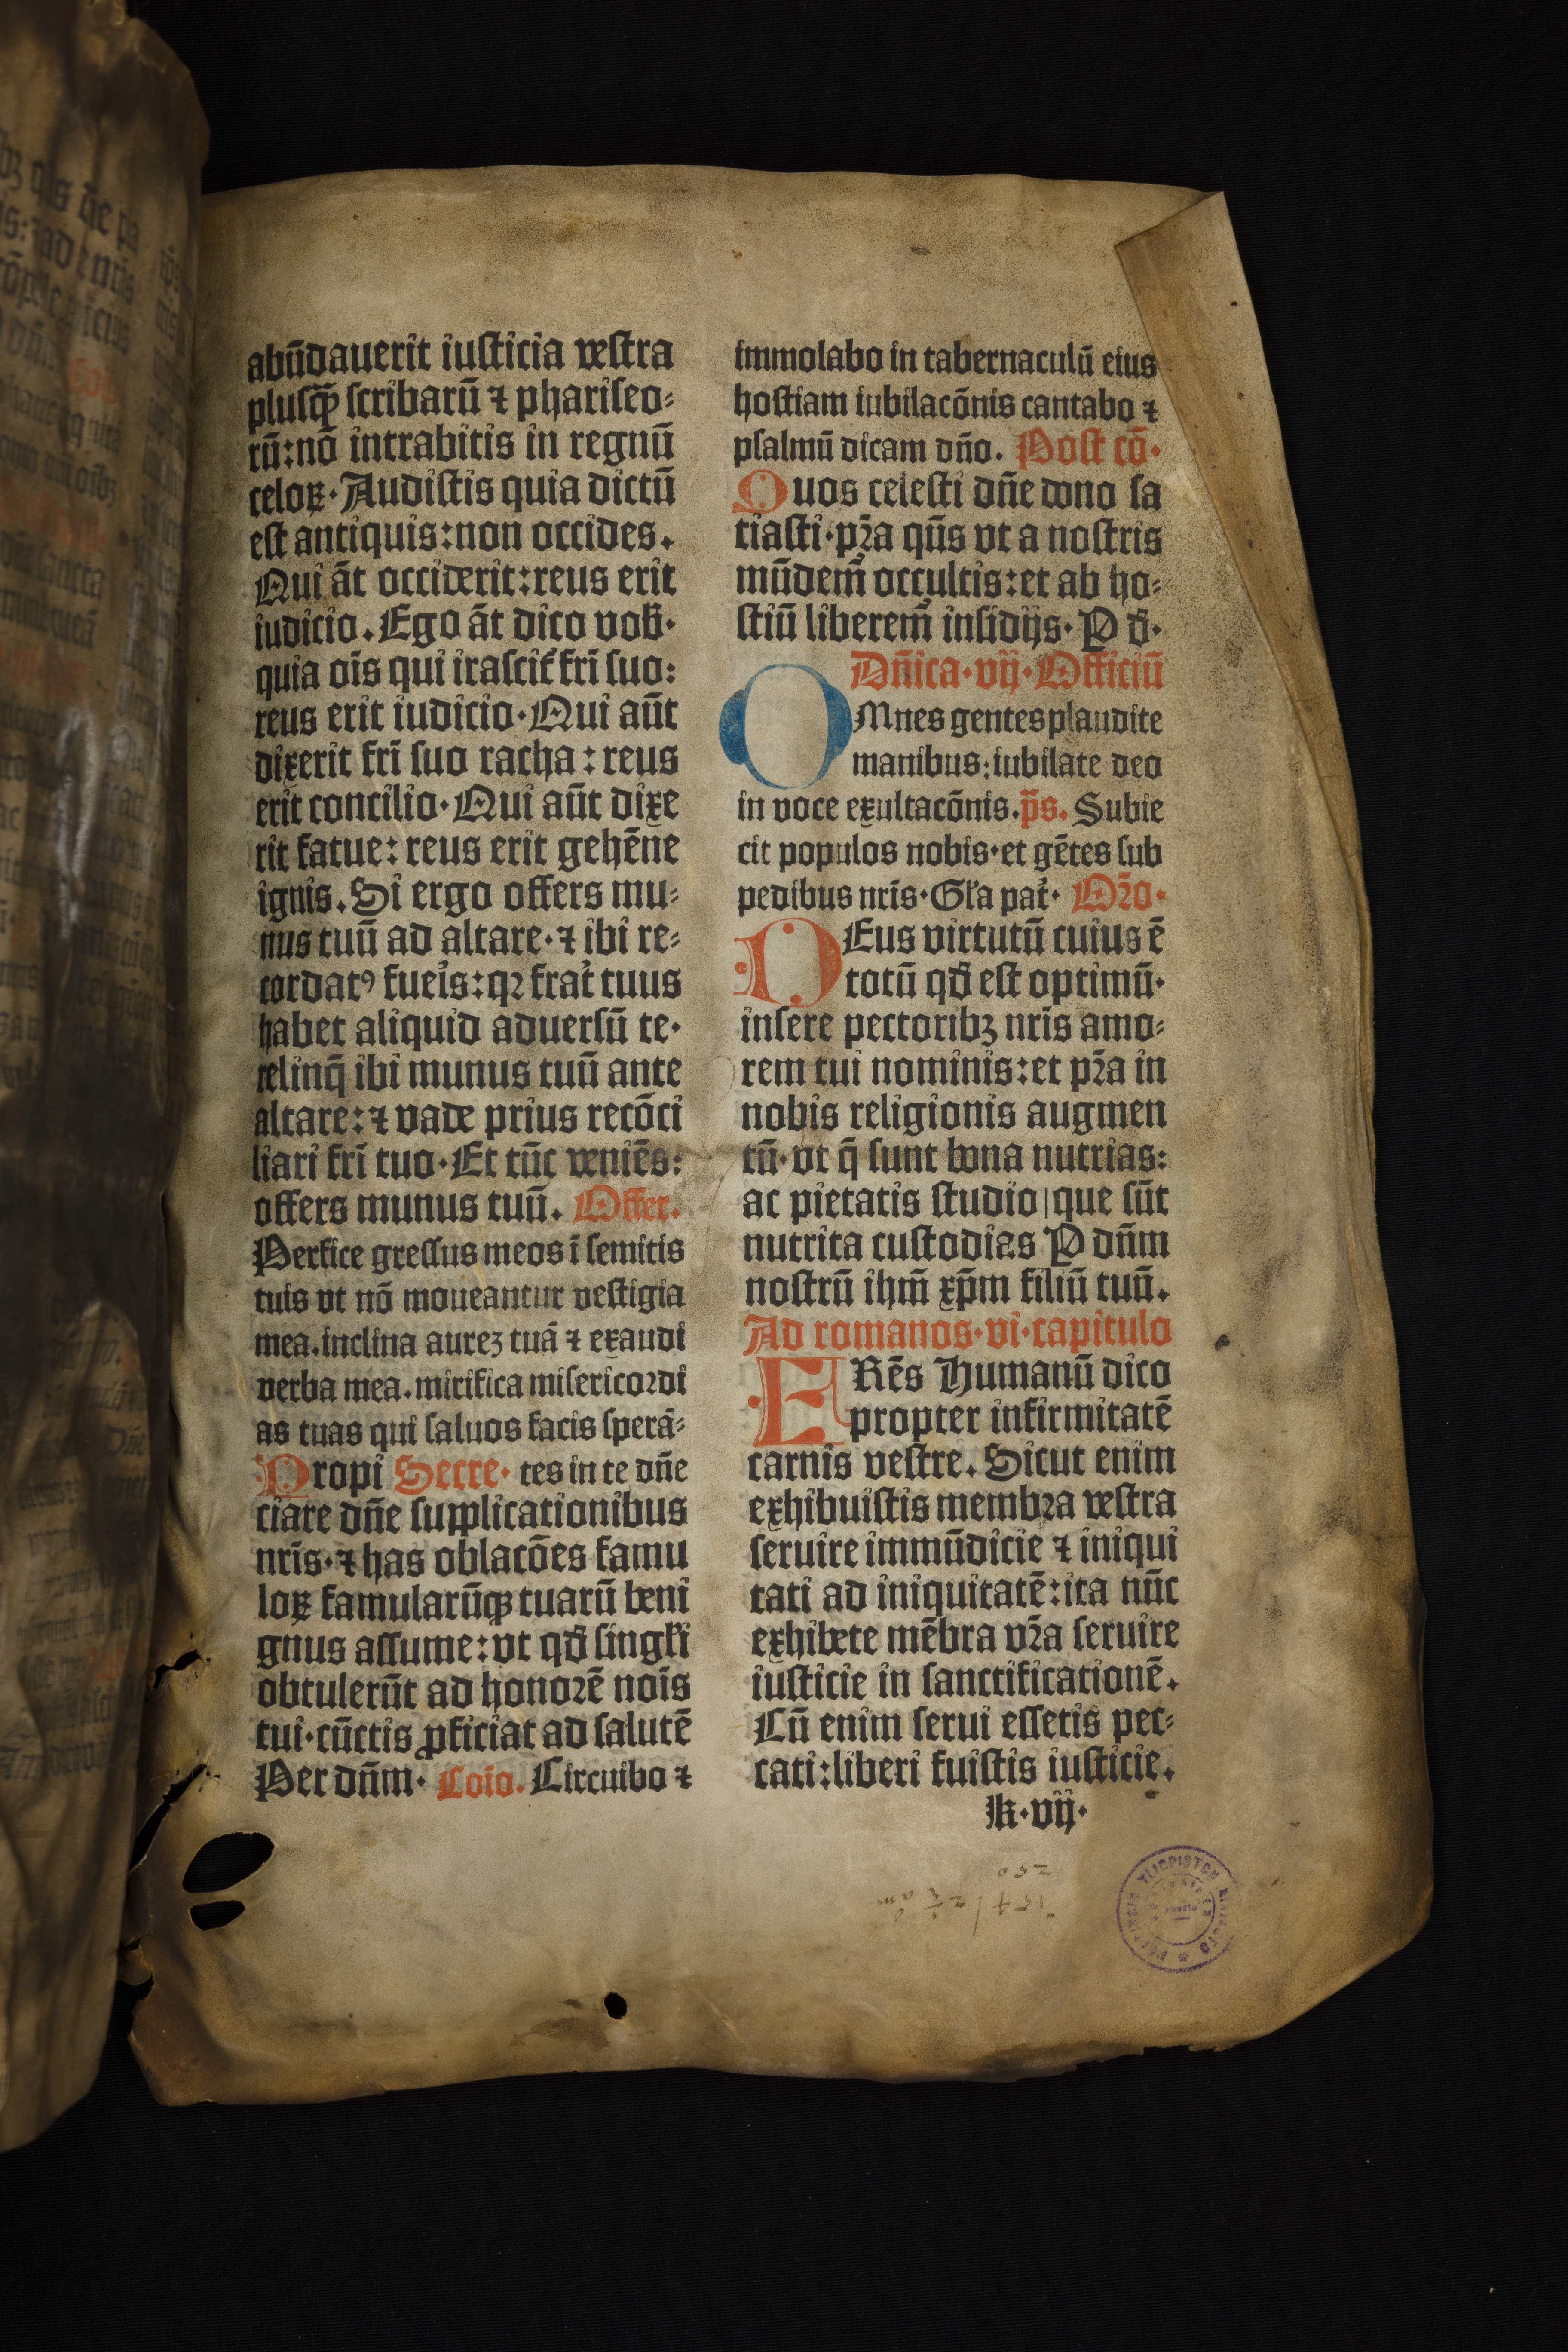 abũdauerit iusticia vestra
plusq̃ȝ scribarũ ⁊ phariseo⸗
rũ:nõ intrabitis in regnũ
celoꝝ·Audistis quia dictũ
est antiquis:non occides.
Qui ãt occiderit:reus erit
iudicio.Ego ãt dico vob̃·
quia oĩs qui irascit̃ frĩ suo:
reus erit iudicio·Qui aũt
dixerit frĩ suo racha:reus
erit concilio·Qui aũt dixe
rit fatue:reus erit gehẽne
ignis.Si ergo offers mu⸗
nus tuũ ad altare·⁊ ibi re⸗
cordatꝰ fueĩs:qꝛ frat̃ tuus
habet aliquid aduersũ te·
relinq̃ ibi munus tuũ ante
altare:⁊ vade prius recõci
liari frĩ tuo·Et tũc veniẽs:
offers munus tuũ. Offer.
Perfice gressus meos ĩ semitis
tuis vt nõ moueantur vestigia
mea.inclina aureȝ tuã ⁊ exaudi
verba mea.mirifica misericoꝛdi
as tuas qui saluos facis sperã⸗
Propi Secre· tes in te dñe
ciare dñe supplicationibus
nrĩs·⁊ has oblacões famu
loꝝ famularũqȝ tuarũ beni
gnus assume:vt qđ singłi
obtulerũt ad honoꝛẽ noĩs
tui·cũctis ꝓficiat ad salutẽ
Per dñm· Coĩo. Circuibo ⁊
immolabo in tabernaculũ eius
hostiam iubilacõnis cantabo ⁊
psalmũ dicam dño. Post cõ·
Quos celesti dñe dono sa
tiasti·pꝛ̃a qũs vt a nostris
mũdem̃ occultis:et ab ho⸗
stiũ liberem̃ insidijs· P đ·
Dñica·vij·Officiũ
OMnes gentes plaudite
manibus:iubilate deo
in voce exultacõnis.p̃s. Subie
cit populos nobis·et gẽtes sub
pedibus nrĩs·Gła pat̃· Oꝛ̃o·
DEus virtutũ cuius ẽ
totũ qđ est optimũ·
insere pectoribȝ nrĩs amo⸗
rem tui nominis:et pꝛ̃a in
nobis religionis augmen
tũ·vt q̃ sunt bona nutrias:
ac pietatis studio|que sũt
nutrita custodias P dñm
nostrũ ihm̃ xp̃m filiũ tuũ.
Ad romanos·vi·capitulo
FRẽs Humanũ dico
propter infirmitatẽ
carnis vestre.Sicut enim
exhibuistis membꝛa vestra
seruire immũdicie ⁊ iniqui
tati ad iniquitatẽ:ita nũc
exhibete mẽbra vꝛ̃a seruire
iusticie in sanctificationẽ.
Cũ enim serui essetis pec⸗
cati:liberi fuistis iusticie.
k·vij·